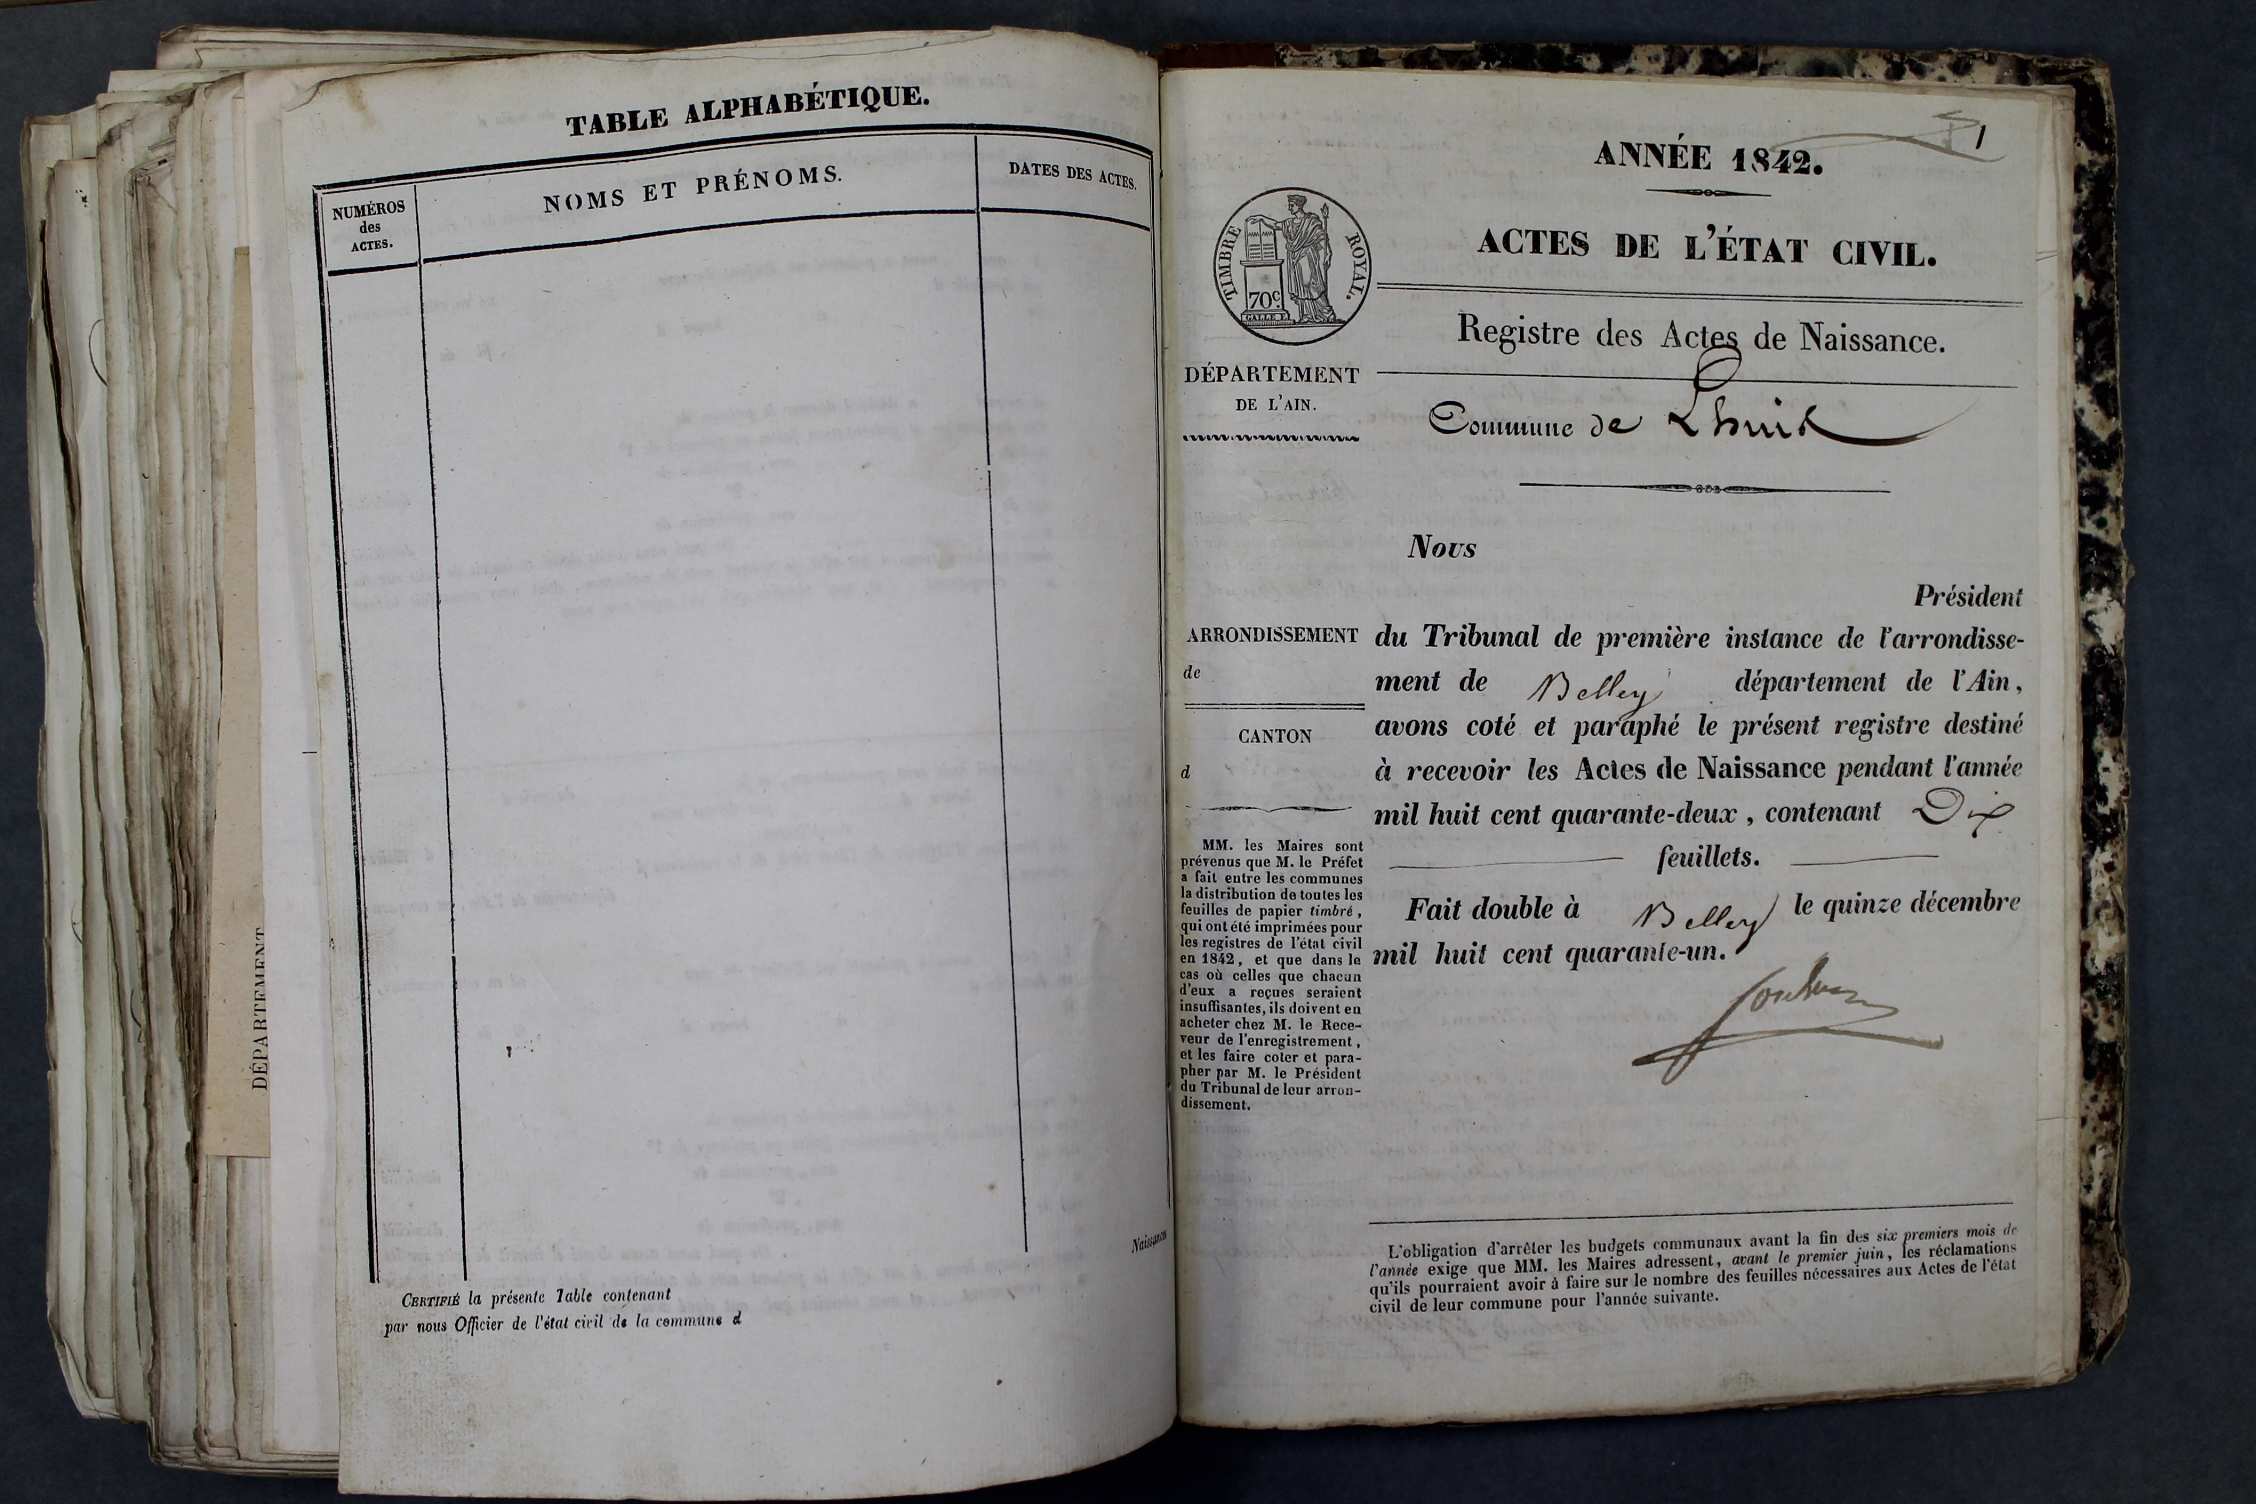 TABLE ALPHABÉTIQUE.
NUMÉROS
des
ACTES.
NOMS ET PRÉNOMS.
DATES DES ACTES.
DÉPARTEMENT
Naissances
CERTIFIÉ la présente Table contenant
par nous Officier de l'état civil de la commune d
1
ANNÉE 1842.
ACTES DE L'ÉTAT CIVIL.
TIMBRE ROYAL.
70c.
GALLE F.
Registre des Actes de Naissance.
DÉPARTEMENT
DE L'AIN.
Commune de Lhuis
Nous
Président
ARRONDISSEMENT
de
CANTON
d
du Tribunal de première instance de l'arrondisse-
ment de Belley département de l'Ain,
avons coté et paraphé le présent registre destiné
à recevoir les Actes de Naissance pendant l'année
mil huit cent quarante-deux, contenant Dix
feuillets.
Fait double à Belley le quinze décembre
mil huit cent quarante-un.
MM. les Maires sont
prévenus que M. le Préfet
a fait entre les communes
la distribution de toutes les
feuilles de papier timbré,
qui ont été imprimées pour
les registres de l'état civil
en 1842, et que dans le
cas où celles que chacun
d'eux a reçues seraient
insuffisantes, ils doivent en
acheter chez M. le Rece-
veur de l'enregistrement,
et les faire coter et para-
pher par M. le Président
du Tribunal de leur arron-
dissement.
L'obligation d'arrêter les budgets communaux avant la fin des six premiers mois de
l'année exige que MM. les Maires adressent, avant le premier juin, les réclamations
qu'ils pourraient avoir à faire sur le nombre des feuilles nécessaires aux Actes de l'état
civil de leur commune pour l'année suivante.